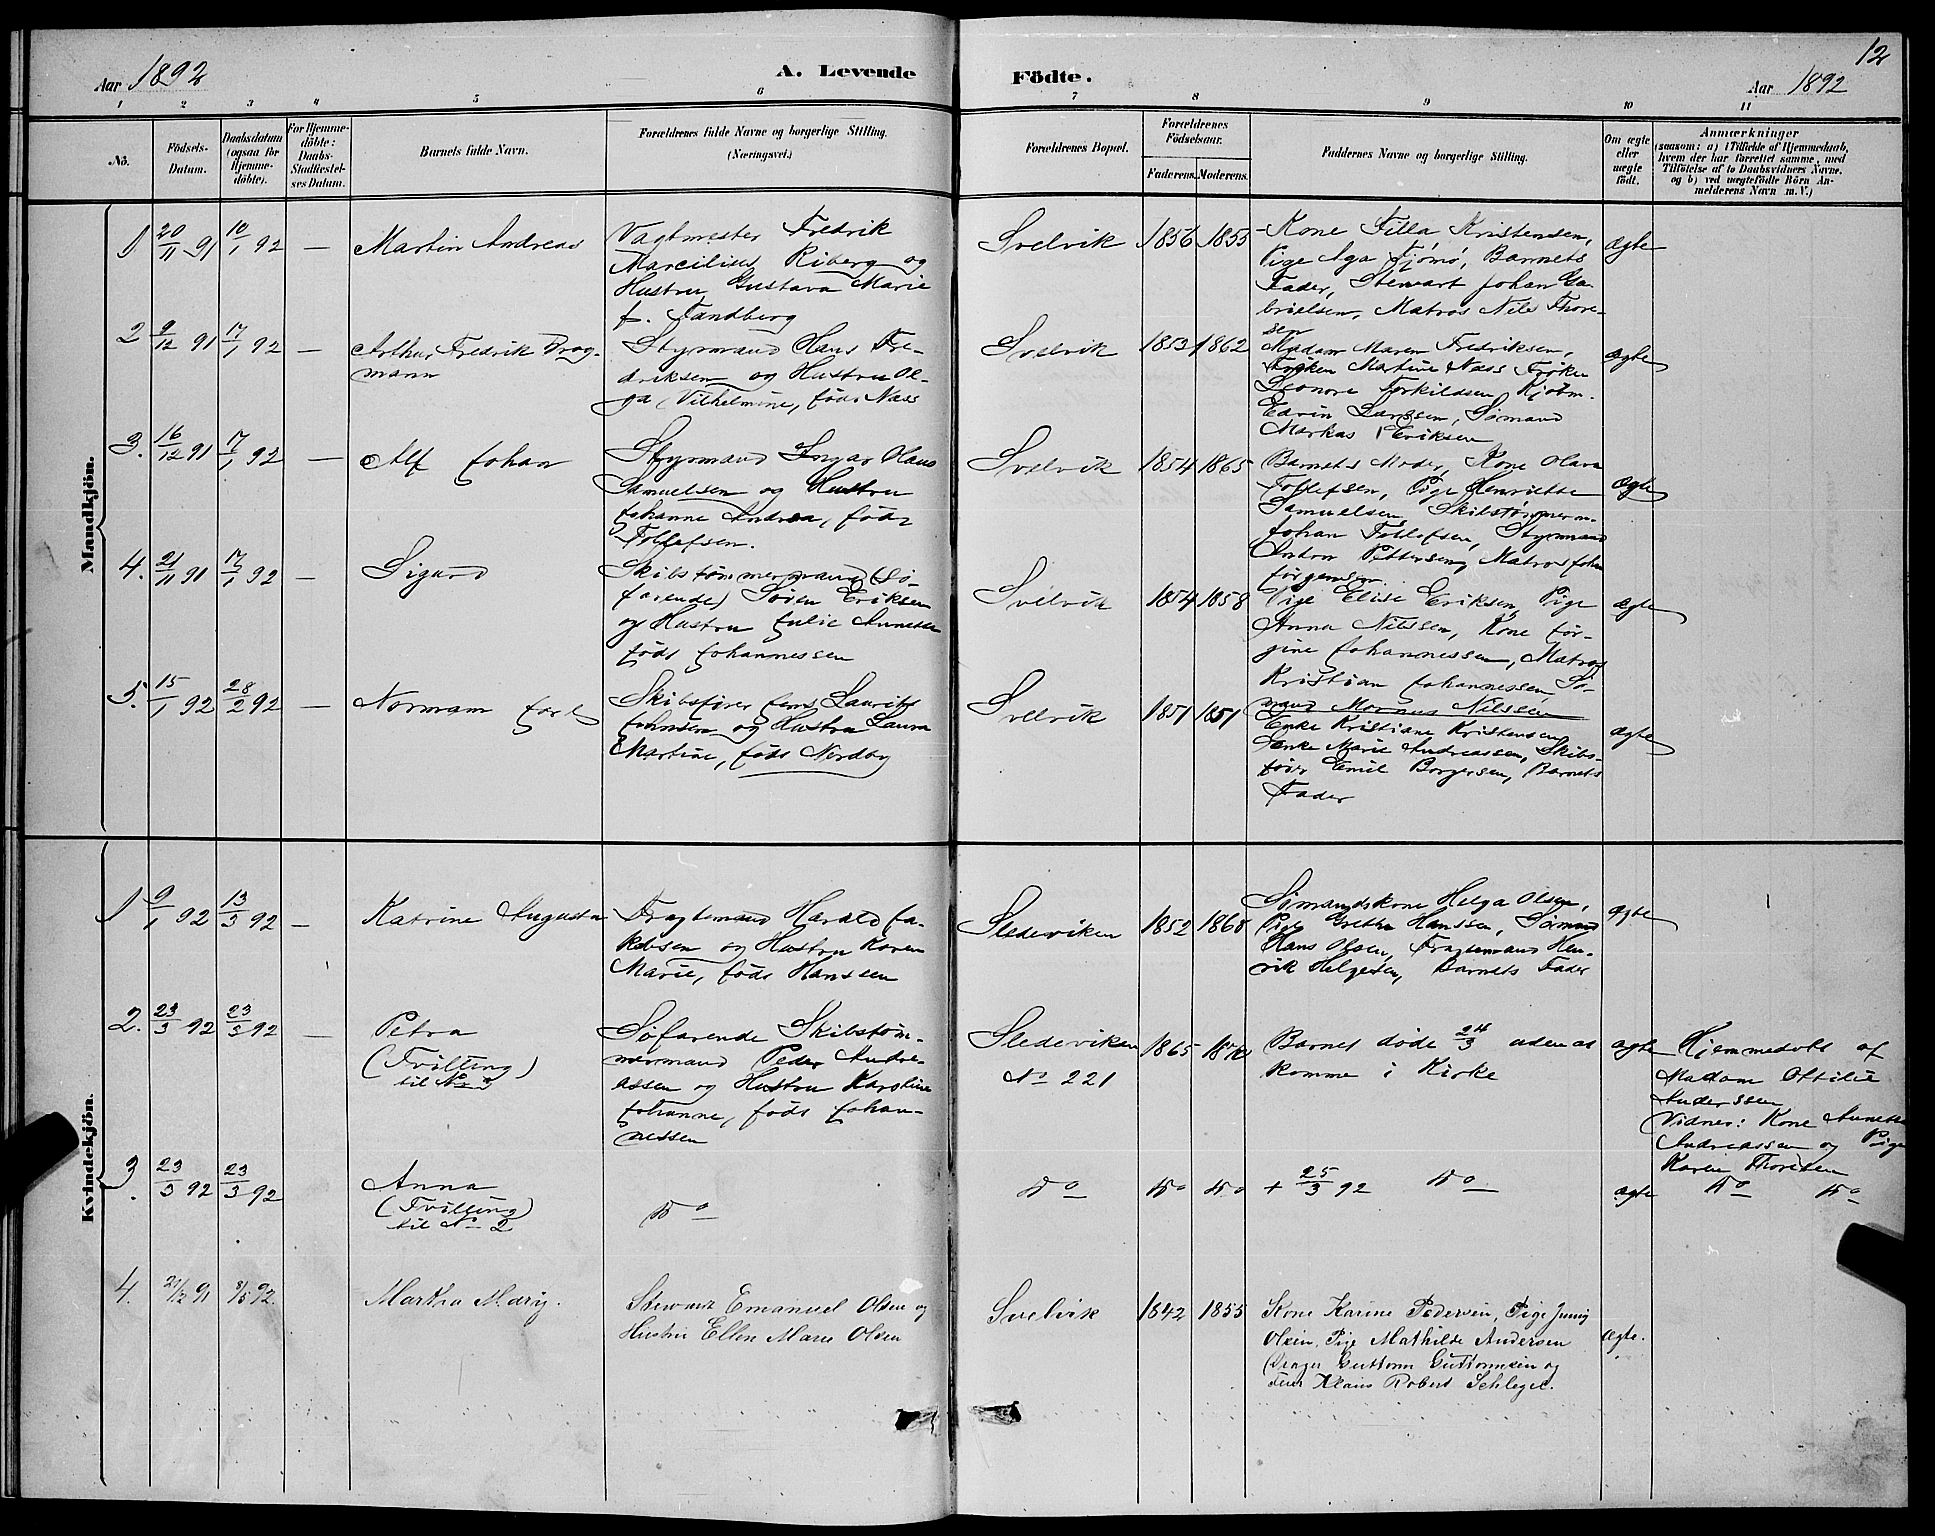 12
Aar 1892
A. Levende Födte.
Aar 1892
1 2 3 4 5 6 7 8 9 10 11
No.
Födsels-Datum.
Daabsdatum (ogsaa for Hjemme-döbte).
For Hjemme-döbte: Daabs-Stadfæstel-ses Datum.
Barnets fulde Navn.
Forældrenes fulde Navne og borgerlige Stilling.
(Næringsvei.)
Forældrenes Bopæl.
Forældrenes Födselsaar.
Faderens. Moderens.
Faddernes Navne og borgerlige Stilling.
Om ægte eller uægte født.
Anmærkninger
(saasom: a) i Tilfælde af Hjemmedaab, hvem der har forrettet samme, med Tilföielse af to Daabsvidners Navne. og b) ved uægtefödte Börn Anmelderens Navn m. V.)
Mandkjön.
1 20/11 91 10/1 92 — Martin Andreas
Vagtmester Fredrik
Marcilius Riberg og
Hustru Gustava Marie
f. Sandberg
Svelvik 1856 1855
Kone Filla Kristensen,
Pige Aga Fjømø, Barnets
Fader, Stewart Johan Ga-
brielsen, Matros Nils Thore-
sen
ægte
2 9/12 91 17/1 92 — Arthur Fredrik Drog-
mann
Styrmand Hans Fre-
driksen og Hustru Ol-
ga Vilhelmine, født Næss
Svelvik 1853 1862
Madam Maren Fredriksen,
Frøken Martine Næss Frøken
Leonore Torkildsen, Kjøbm.
Edvin Larssen, Sømand
Markus Eriksen
ægte
3. 16/12 91 17/1 92 — Alf Johan
Styrmand Ingar Hans
Samuelsen og Hustru
Johanne Andrea, født
Tollefsen.
Svelvik 1854 1865
Barnets Moder, Kone Olava
Tollefsen, Pige Henriette
Samuelsen, Skibstømmerm.
Johan Tollefsen, Styrmand
Anton Pettersen, Matros Johan
Jørgensen.
ægte
4. 21/11 91 17/1 92 — Sigurd
Skibstømmermand (Sø-
farende) Søren Eriksen
og Hustru Julie Annette
født Johannessen
Svelvik 1854 1858
Pige Elise Eriksen, Pige
Anna Nilssen, Kone Jør-
gine Johannessen, Matros
Kristian Johannessen, Sø-
mand Magnus Nilssen
ægte
5. 15/1 92 28/2 92 — Normann Carl
Skibsfører Jens Lauritz
Johnsen og Hustru Laura
Martine, født Nordby
Svelvik 1851 1851
Enke Kristiane Kristensen
Enke Marie Andreassen, Skibs-
fører Emil Borgersen, Barnets
Fader
ægte
Kvindekjön.
1 9/1 92 13/3 92 — Katrine Augusta
Fragtemand Harald Ja-
kobsen og Hustru Karen
Marie, født Hanssen
Sledeviken 1852 1868
Sømandskone Helga Olsen,
Pige Grethe Hanssen, Sømand
Hans Olsen, Fragtemand Hen-
rik Helgesen, Barnets Fader
ægte
2. 23/3 92 23/3 92 — Petra
(Tvilling)
til No 3
Søfarende Skibstøm-
mermand Peder Andre-
assen og Hustru Karoline
Johanne, født Johan-
nessen
Sledeviken
No 221
1865
Barnet døde 24/3 uden at
komme i Kirke
ægte
Hjemmedøbt af
Madam Ottilie
Anderssen
Vidner: Kone Annette
Andreassen og Pige
Karen Thoresen
3. 23/3 92 23/3 92
Anna
(Tvilling)
til No 2
Do
Do Do Do
+ 25/3 92 Do
ægte
Do Do
4. 21/12 91 8/5 92. Martha Marie.
Stewart Emanuel Olsen og
Hustru Ellen Marie Olsen
Svelvik 1842 1855
Kone Karine Pedersen, Pige Jenny
Olsen, Pige Mathilde Andersen
Guttorm Guttormsen og
Klaus Robert Schlegel.
ægte.